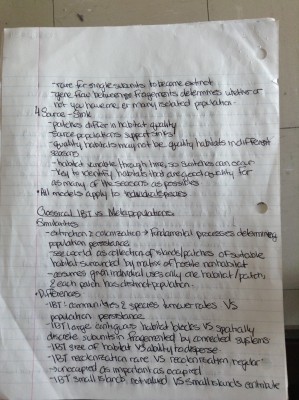 -rare for single subunits to become extinct
-gene flow between fragements determines whether or
not you have one, or many isolated population.
4. Source-Sink
-patches differ in habitat quality
-source populations support sinks!
-quality habitats may not be quality habitats in different
seasons
-habitat variable through time, so switches can occur
-key to identify habitats that are good quality for
as many of the seasons as possible
*All models apply to individual species
Classical IBT vs Metapopulations
Similarities
-extinction & colonization → fundamental processes determining
population persistence
-see world as collection of islands/patches of suitable
habitat surrounded by matrix of hostile nonhabitat
-assumes given individual uses only one habitat/patch,
& each patch has distinct population.
Differences
-IBT: communities & species turnover rates VS
population persistence
-IBT large contiguous habitat blocks VS spatially
discrete subunits in fragmented by connected systems
-IBT size of habitat VS ability to disperse
-IBT recolonization rare VS recolonization regular
-unoccupied as important as occupied
-IBT small islands not valued VS small islands contribute